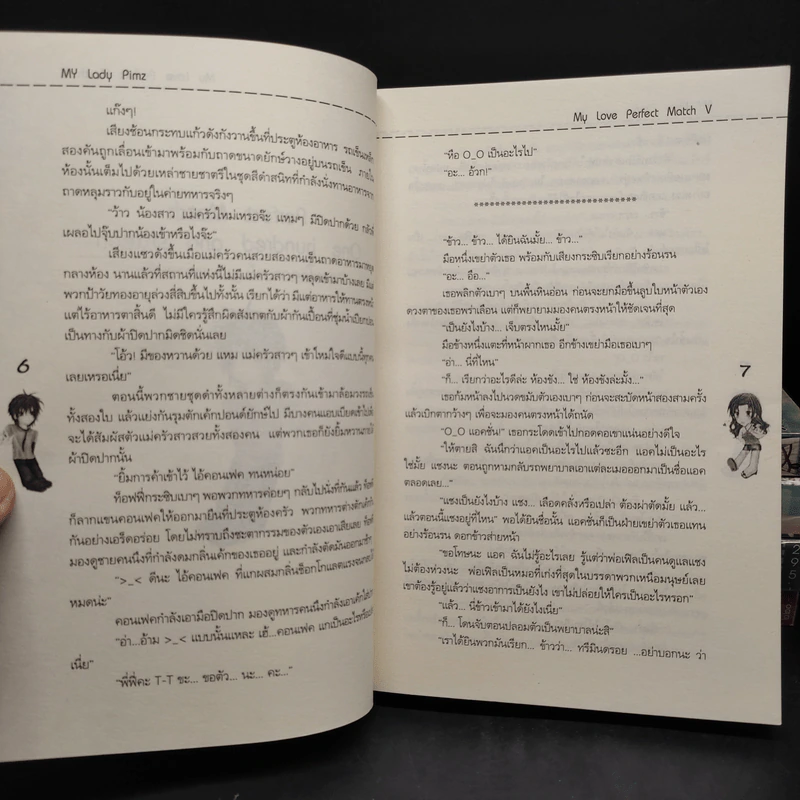 MY Lady Pimz
แก๊งๆ!
เสียงช้อนกระทบแก้วดังกังวานขึ้นที่ประตูห้องอาหาร รถเข็นเหล็ก
สองคันถูกเลื่อนเข้ามาพร้อมกับถาดขนาดยักษ์วางอยู่บนรถเข็น ภายใน
ห้องนั้นเต็มไปด้วยเหล่าชายชาตรีในชุดสีดำสนิทที่กำลังนั่งทานอาหารจาก
ถาดหลุมราวกับอยู่ในค่ายทหารจริงๆ
"ว้าว น้องสาว แม่ครัวใหม่เหรอจ๊ะ แหมๆ มีปิดปากด้วย กลัวพี่
เผลอไปจุ๊บปากน้องเข้าหรือไงจ๊ะ"
เสียงแซวดังขึ้นเมื่อแม่ครัวคนสวยสองคนเข็นถาดอาหารมา
กลางห้อง นานแล้วที่สถานที่แห่งนี้ไม่มีแม่ครัวสาวๆ หลุดเข้ามาบ้างเลย
พวกป้าวัยทองอายุล่วงสี่สิบขึ้นไปทั้งนั้น เรียกได้ว่า มีแต่อาหารให้ทาน
แต่ไร้อาหารตาสิ้นดี ไม่มีใครรู้สึกผิดสังเกตกับผ้ากันเปื้อนที่ชุ่มน้ำ
เป็นทางกับผ้าปิดปากมิดชิดนั่นเลย
"โอ้ว! มีของหวานด้วย แหม แม่ครัวสาวๆ เข้าใหม่ใจดีแบบนี้ทุกคน
เลยเหรอเนี่ย"
ตอนนี้พวกชายชุดดำทั้งหลายต่างก็ตรงกันเข้ามาล้อมวงรถเข็น
ทั้งสองใบ แล้วแย่งกันรุมตักเค้กปอนด์ยักษ์ไป มีบางคนแอบเบียดเข้าไป
จะได้สัมผัสตัวแม่ครัวสาวสวยทั้งสองคน แต่พวกเธอก็ยังยิ้มหวานภายใต้
ผ้าปิดปากนั้น
"ยิ้มการค้าเข้าไว้ ไอ้คอนเฟค ทนหน่อย"
ท็อฟฟี่กระซิบเบาๆ พอพวกทหารค่อยๆ กลับไปนั่งที่กันแล้ว
ก็ลากแขนคอนเฟคให้ออกมายืนที่ประตูห้องครัว พวกทหารต่างตักเค้ก
กันอย่างเอร็ดอร่อย โดยไม่ทราบถึงชะตากรรมของตัวเองเอาเสียเลย
มองดูชายคนนึงที่กำลังดมกลิ่นเค้กของเธออยู่ และกำลังตัดมันออกมา
">_< ตีนะ ไอ้คอนเฟค ที่แกผสมกลิ่นช็อกโกแลตแรงจน
หมดน่ะ"
คอนเฟคกำลังเอามือปิดปาก มองดูทหารคนนึงกำลังเอาเค้กใส่
"อ่า...อ้าม >_< แบบนั้นแหละ เฮ้...คอนเฟค แกเป็นอะไร
เนี่ย"
"พี่ฟี่คะ T-T ขะ... ขอตัว... นะ... คะ..."
6
My Love Perfect Match V
"หือ O_O เป็นอะไรไป"
"อะ... อ้วก!"
******************************
"ข้าว... ข้าว... ได้ยินฉันมั้ย... ข้าว..."
มือหนึ่งเขย่าตัวเธอ พร้อมกับเสียงกระซิบเรียกอย่างร้อนรน
"อะ... อือ..."
เธอพลิกตัวเบาๆ บนพื้นหินอ่อน ก่อนจะยกมือขึ้นลูบใบหน้าตัวเอง
ดวงตาของเธอพร่าเลือน แต่ก็พยายามมองคนตรงหน้าให้ชัดเจนที่สุด
"เป็นยังไงบ้าง... เจ็บตรงไหนมั้ย"
มือข้างหนึ่งแตะที่หน้าผากเธอ อีกข้างเขย่ามือเธอเบาๆ
"อ่า... นี่ที่ไหน"
"ก็... เรียกว่าอะไรดีล่ะ ห้องขัง... ใช่ ห้องขังล่ะมั้ง..."
เธอก้มหน้าลงไปนวดขมับตัวเองเบาๆ ก่อนจะสะบัดหน้าสองสามครั้ง
แล้วเบิกตากว้างๆ เพื่อจะมองคนตรงหน้าได้ถนัด
"O_O แอคชั่น!" เธอกระโดดเข้าไปกอดคอเขาแน่นอย่างดีใจ
"ให้ตายสิ ฉันนึกว่าแอคเป็นอะไรไปแล้วซะอีก แอคไม่เป็นอะไร
ใช่มั้ย แชงนะ ตอนถูกหามกลับรถพยาบาลเอาแต่ละเมอออกมาเป็นชื่อแอค
ตลอดเลย..."
"แชงเป็นยังไงบ้าง แชง... เลือดคลั่งหรือเปล่า ต้องผ่าตัดมั้ย แล้ว...
แล้วตอนนี้แชงอยู่ที่ไหน" พอได้ยินชื่อนั้น แอคชั่นก็เป็นฝ่ายเขย่าตัวเธอแทน
อย่างร้อนรน ดอกข้าวส่ายหน้า
"ขอโทษนะ แอค ฉันไม่รู้อะไรเลย รู้แต่ว่าพ่อเฟิลเป็นคนดูแลแชง
ไม่ต้องห่วงนะ พ่อเฟิลเป็นหมอที่เก่งที่สุดในบรรดาพวกเหนือมนุษย์เลย
เขาต้องรู้อยู่แล้วว่าแชงอาการเป็นยังไง เขาไม่ปล่อยให้ใครเป็นอะไรหรอก"
"แล้ว... นี่ข้าวเข้ามาได้ยังไงเนี่ย"
"ก็... โดนจับตอนปลอมตัวเป็นพยาบาลน่ะสิ"
"เราได้ยินพวกมันเรียก... ข้าวว่า... ทรีมินดรอย ...อย่าบอกนะ ว่า
7